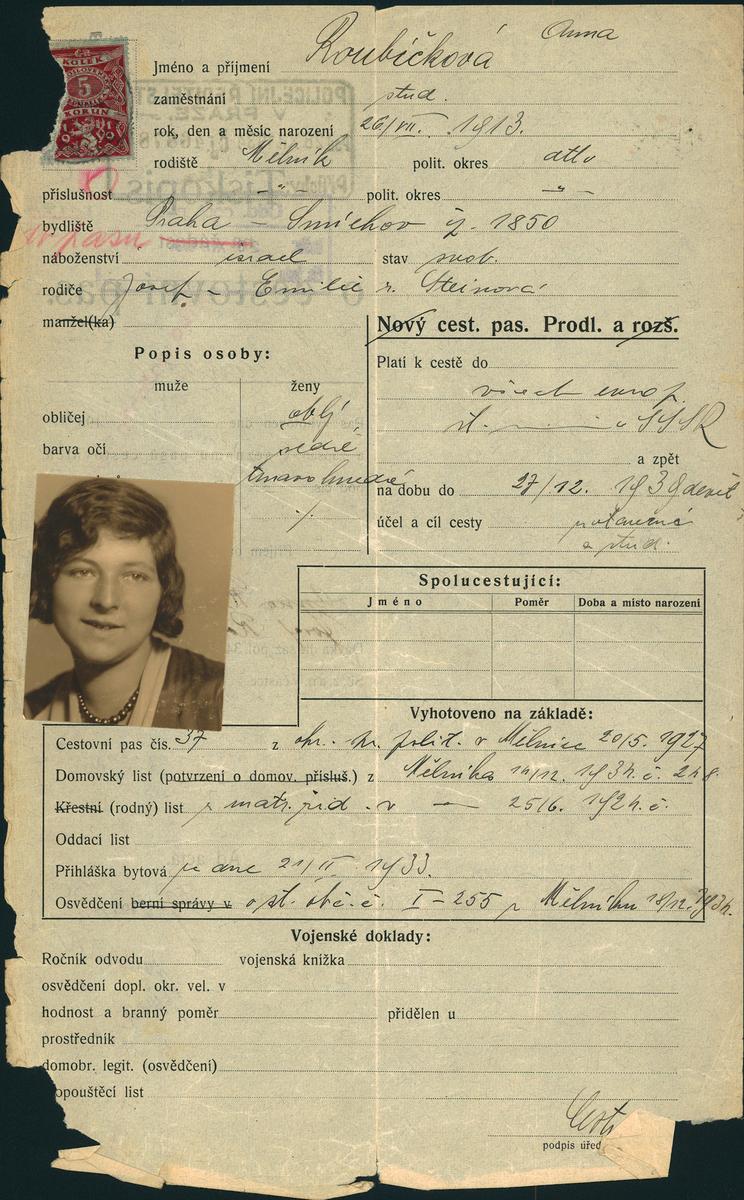 KOLEK
5
KORUN
Jméno a příjmení Roubíčková Anna
zaměstnání stud.
rok, den a měsíc narození 26/VII. 1913.
rodiště Mělník polit. okres dtto
příslušnost - " - polit. okres - " -
bydliště Praha - Smíchov čj. 1850
náboženství israel stav svob.
rodiče Josef - Emilie r. Steinová
manžel(ka)
Nový cest. pas. Prodl. a rozš.
Popis osoby:
Platí k cestě do
muže ženy
všech evrop.
obličej oblý
st. SSSR
barva očí šedé
a zpět
tmavohnědé
na dobu do 27/12. 1939 devět
účel a cíl cesty
a stud.
Spolucestující:
Jméno Poměr Doba a místo narození
Vyhotoveno na základě:
Cestovní pas čís. 37 z okr. polit. v Mělníce 20/5. 1927
Domovský list (potvrzení o domov. přísluš.) z Mělníka 14/12. 1934 č. 248
Křestní (rodný) list z matr. žid. v - 25/6. 1924 č.
Oddací list
Přihláška bytová ze dne 21/II. 1933.
Osvědčení berní správy v I-255 z Mělníku 18/12. 1934.
Vojenské doklady:
Ročník odvodu vojenská knížka
osvědčení dopl. okr. vel. v
hodnost a branný poměr přidělen u
prostředník
domobr. legit. (osvědčení)
opouštěcí list
podpis úřed